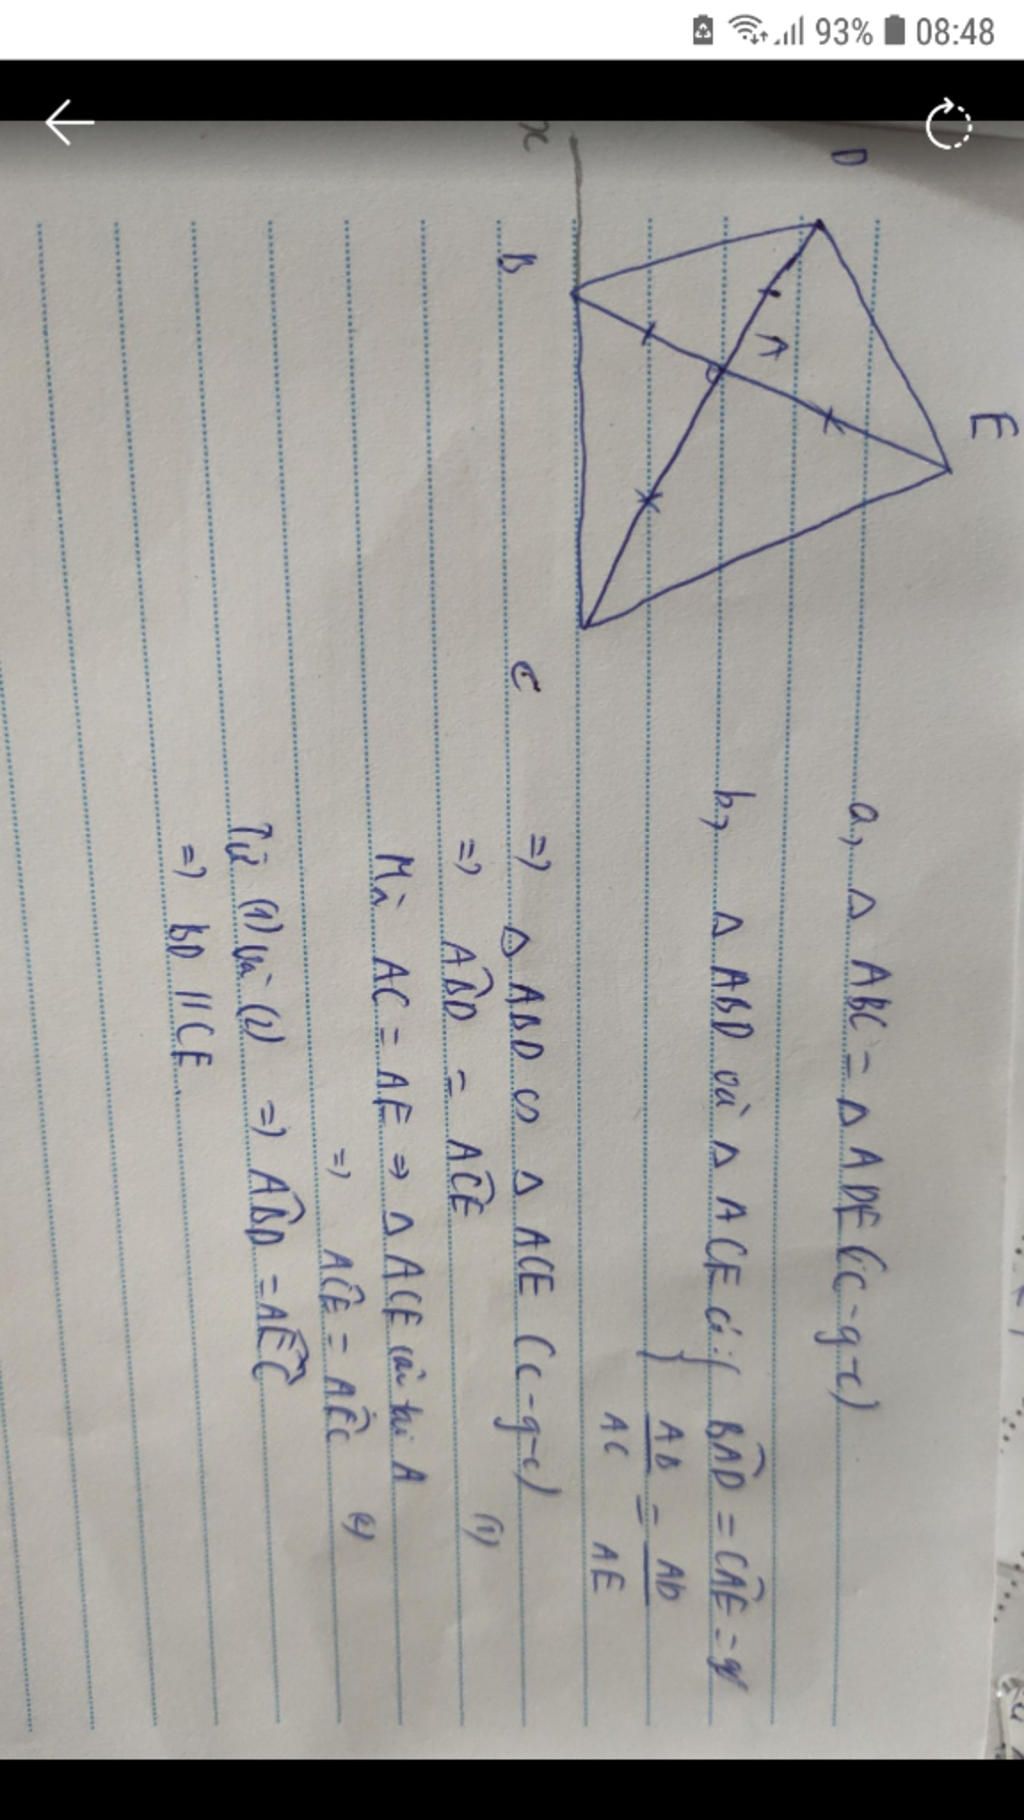 93% 08:48
D
E
A
x
B
C
a, Δ ABC = Δ ADE (c-g-c)
b, Δ ABD và Δ ACE có: { BAD = CAE = 90
AB = AD
AC AE
=> Δ ABD ∽ Δ ACE (c-g-c)
=> ABD = ACE (1)
Mà AC = AE => Δ ACE cân tại A
=> ACE = AEC (2)
Từ (1) và (2) => ABD = AEC
=> BD // CE.